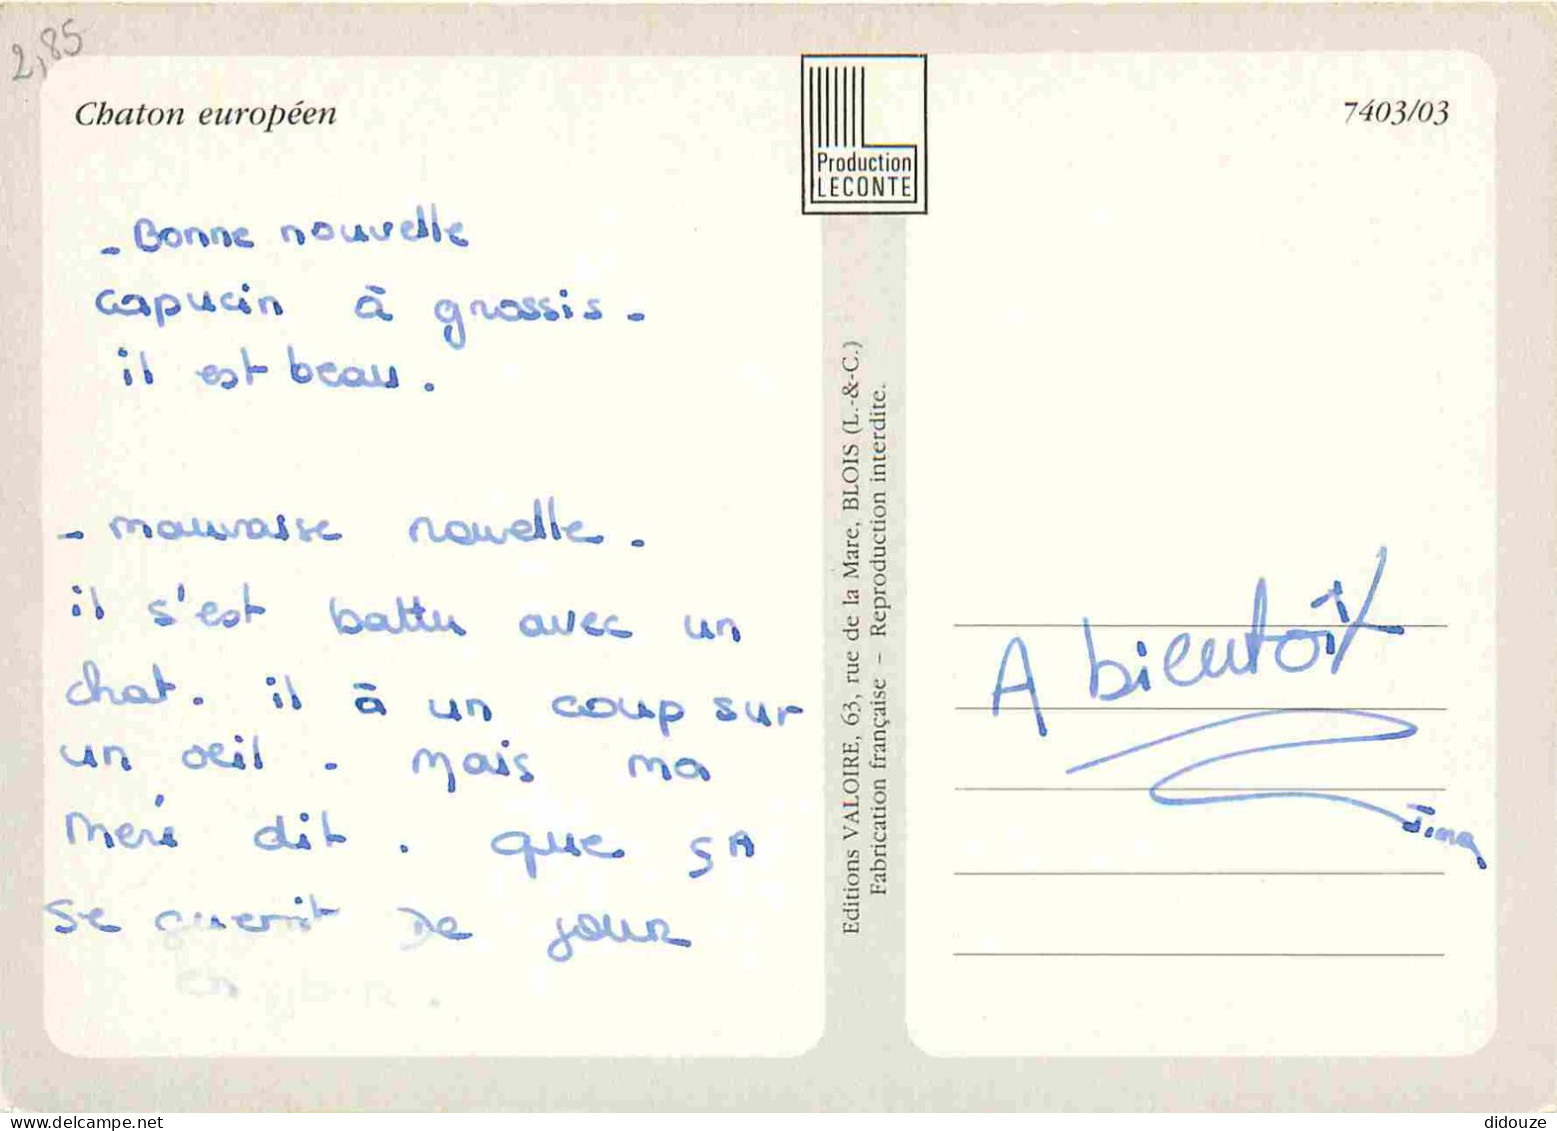 2,85
Chaton européen
- Bonne nouvelle
capucin à grossis -
il est beau.
- mauvaisse nouvelle.
il s'est battu avec un
chat. il à un coup sur
un oeil. Mais ma
meré dit. que ça
se guerit de jour
en
Production
LECONTE
Editions VALOIRE, 63, rue de la Mare, BLOIS (L.-&-C.)
Fabrication française – Reproduction interdite.
7403/03
A bientôit
didouze